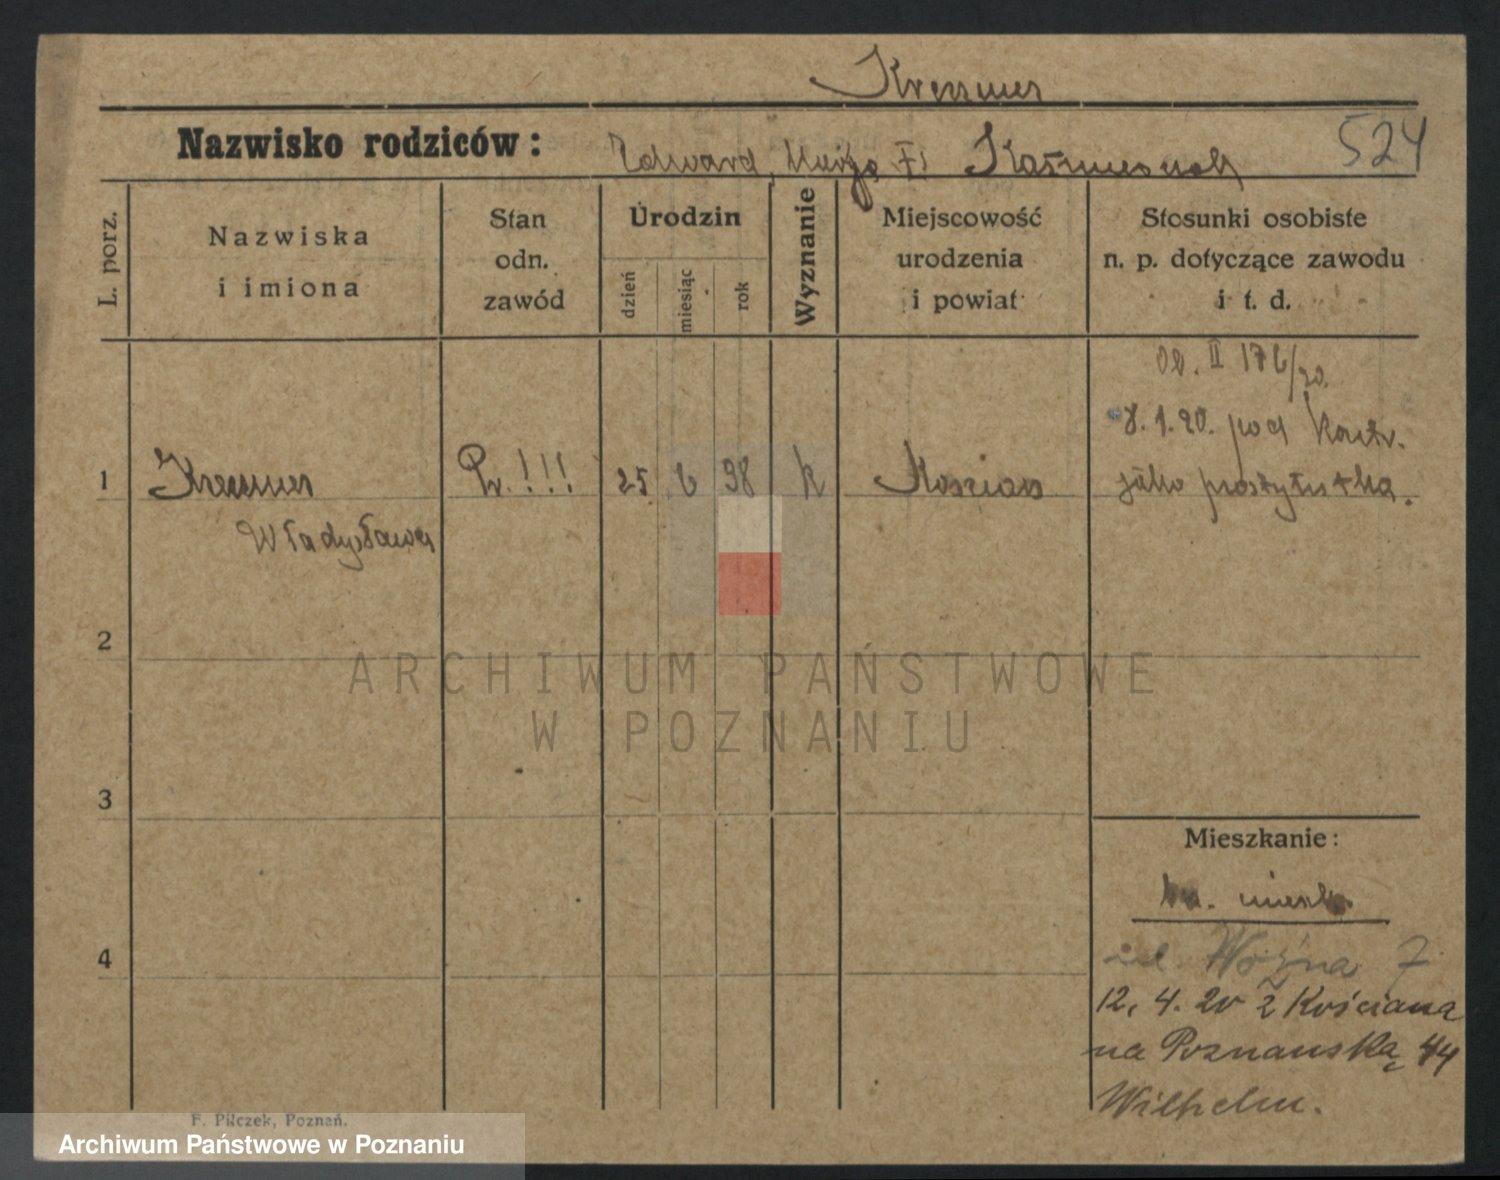 Kremmer
Nazwisko rodziców: Edward, Maryja 524
L. porz.
Nazwiska
i imiona
Stan
odn.
zawód
Urodzin
dzień
miesiąc
rok
Wyznanie
Miejscowość
urodzenia
i powiat
Stosunki osobiste
n. p. dotyczące zawodu
i t. d.
Ob. II 176/20.
8. 1. 20. pod Kontr.
jako prostytutka.
1 Kremmer Pr. !!! 25 6 98 k Kościan
Władysława
2
3
4
Mieszkanie:
bn. mieszk.
ul. Woźna 7
12. 4. 20 z Kościana
na Poznańską 44
Wilhelm.
F. Pilczek, Poznań.
ARCHIWUM PAŃSTWOWE
W POZNANIU
Archiwum Państwowe w Poznaniu